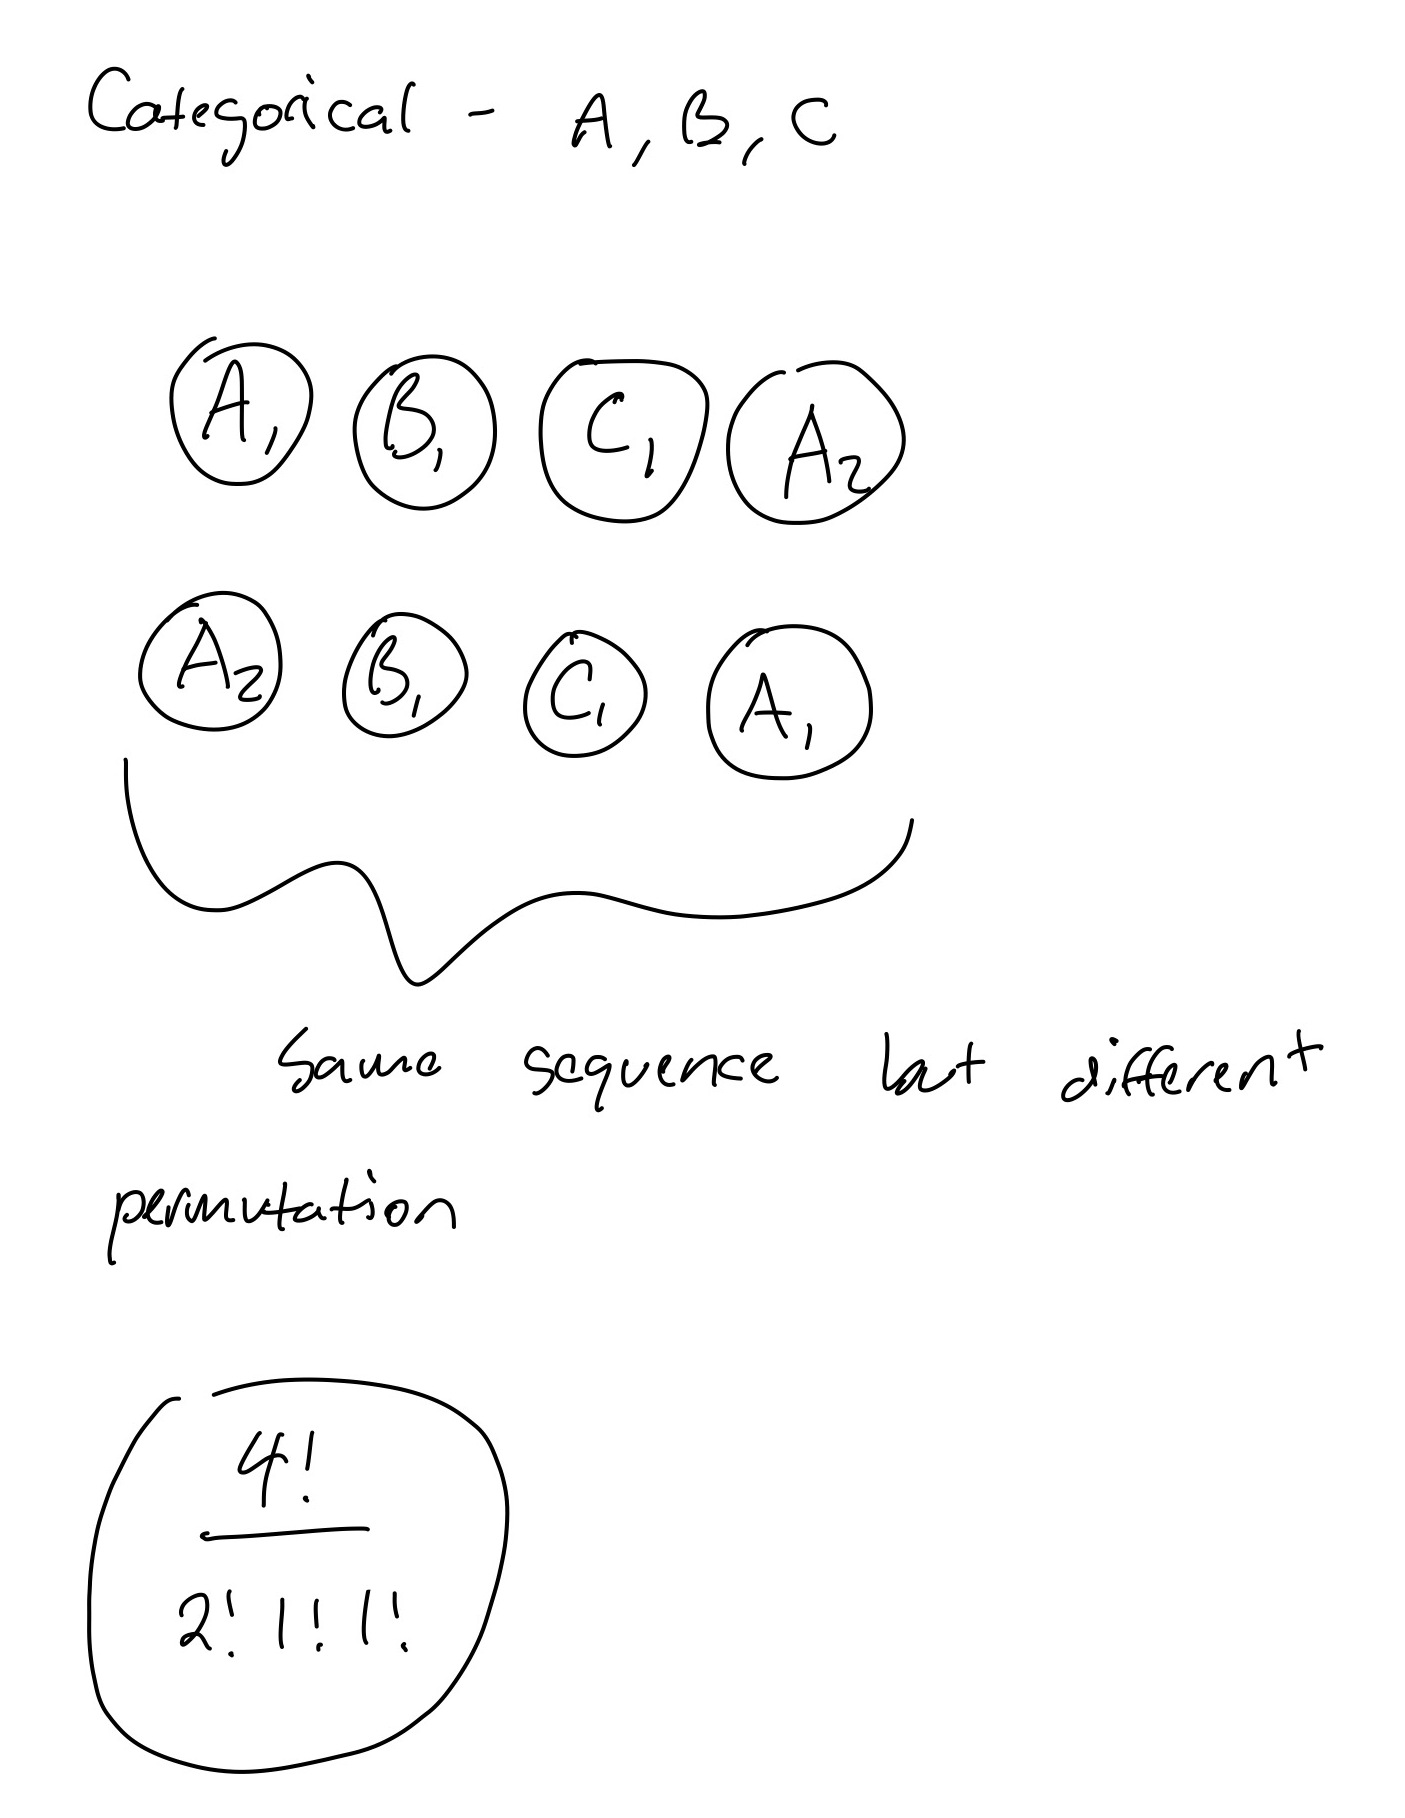 Categorical - A, B, C
A₁ B₁ C₁ A₂
A₂ B₁ C₁ A₁
Same sequence but different
permutation
4!
2! 1! 1!